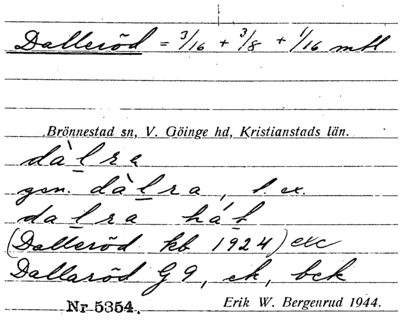 Dalleröd = 3/16 + 3/8 + 1/16 mtl
Brönnestad sn, V. Göinge hd, Kristianstads län.
dàlra
gen. dàlra, t. ex.
dalra hát
(Dalleröd kb 1924) exc
Dallaröd G 9, ek, bck
Nr 5354. Erik W. Bergenrud 1944.